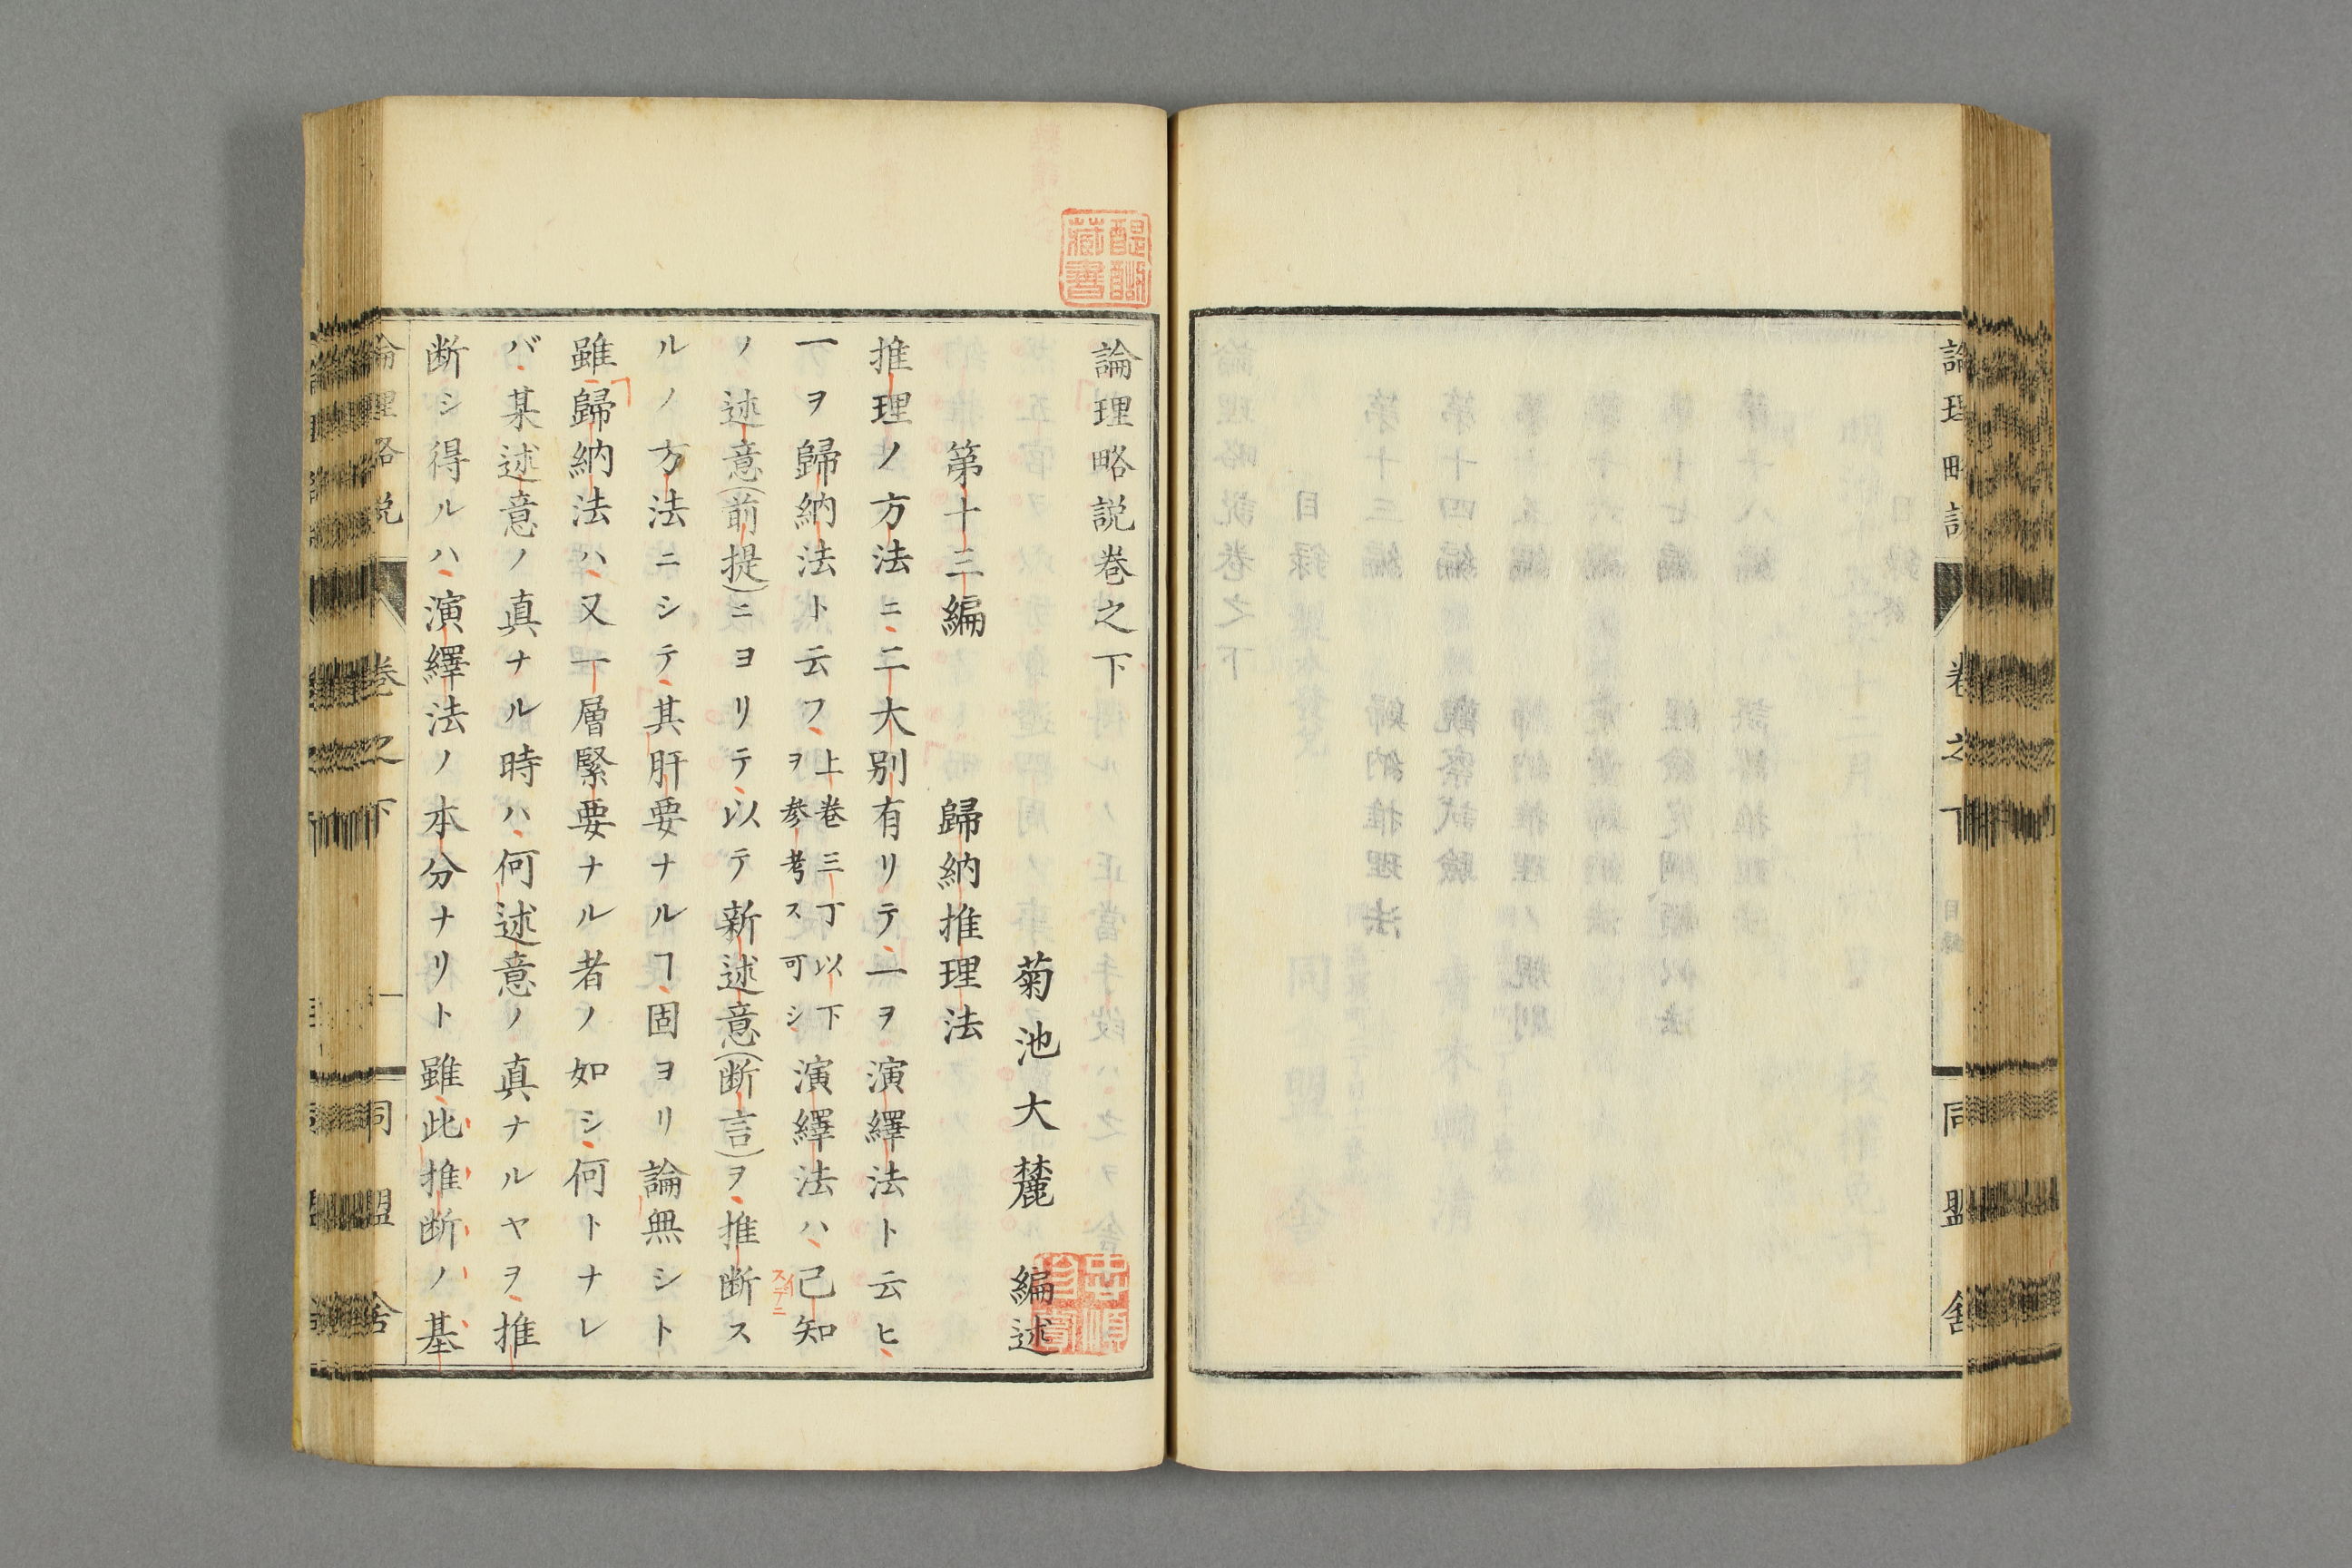 論理略説卷之下
菊池大麓 編述
第十三編 歸納推理法
推理ノ方法ニ二大別有リテ一ヲ演繹法ト云ヒ
一ヲ歸納法ト云フ上卷三丁以下ヲ参考ス可シ演繹法ハ己知
スデニ
ノ述意(前提)ニヨリテ以テ新述意(断言)ヲ推断ス
ルノ方法ニシテ其肝要ナルヿ固ヨリ論無シト
雖歸納法ハ又一層緊要ナル者ノ如シ何トナレ
バ某述意ノ真ナル時ハ何述意ノ真ナルヤヲ推
断シ得ルハ演繹法ノ本分ナリト雖此推断ノ基
論理略説 卷之下 一 同盟舎
論理略説 卷之下 目録 同盟舎
醍醐藏書